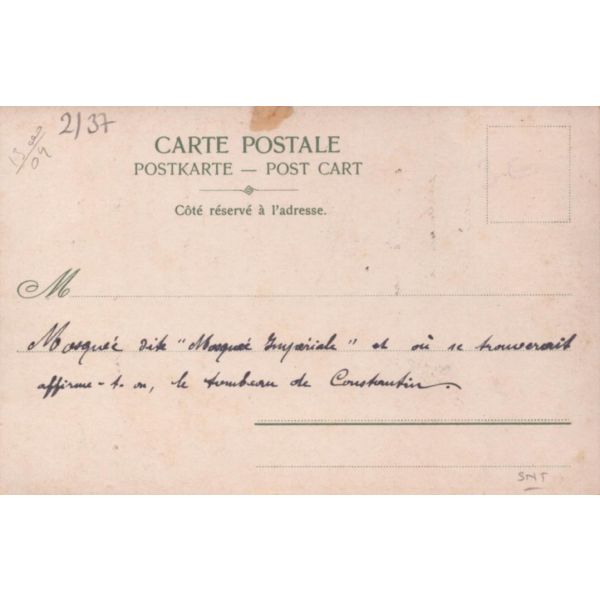 2/37
CARTE POSTALE
POSTKARTE — POST CART
Côté réservé à l'adresse.
M
Mosquée dite "Mosquée Impériale" et où se trouverait
affirme-t-on, le tombeau de Constantin.
SNT